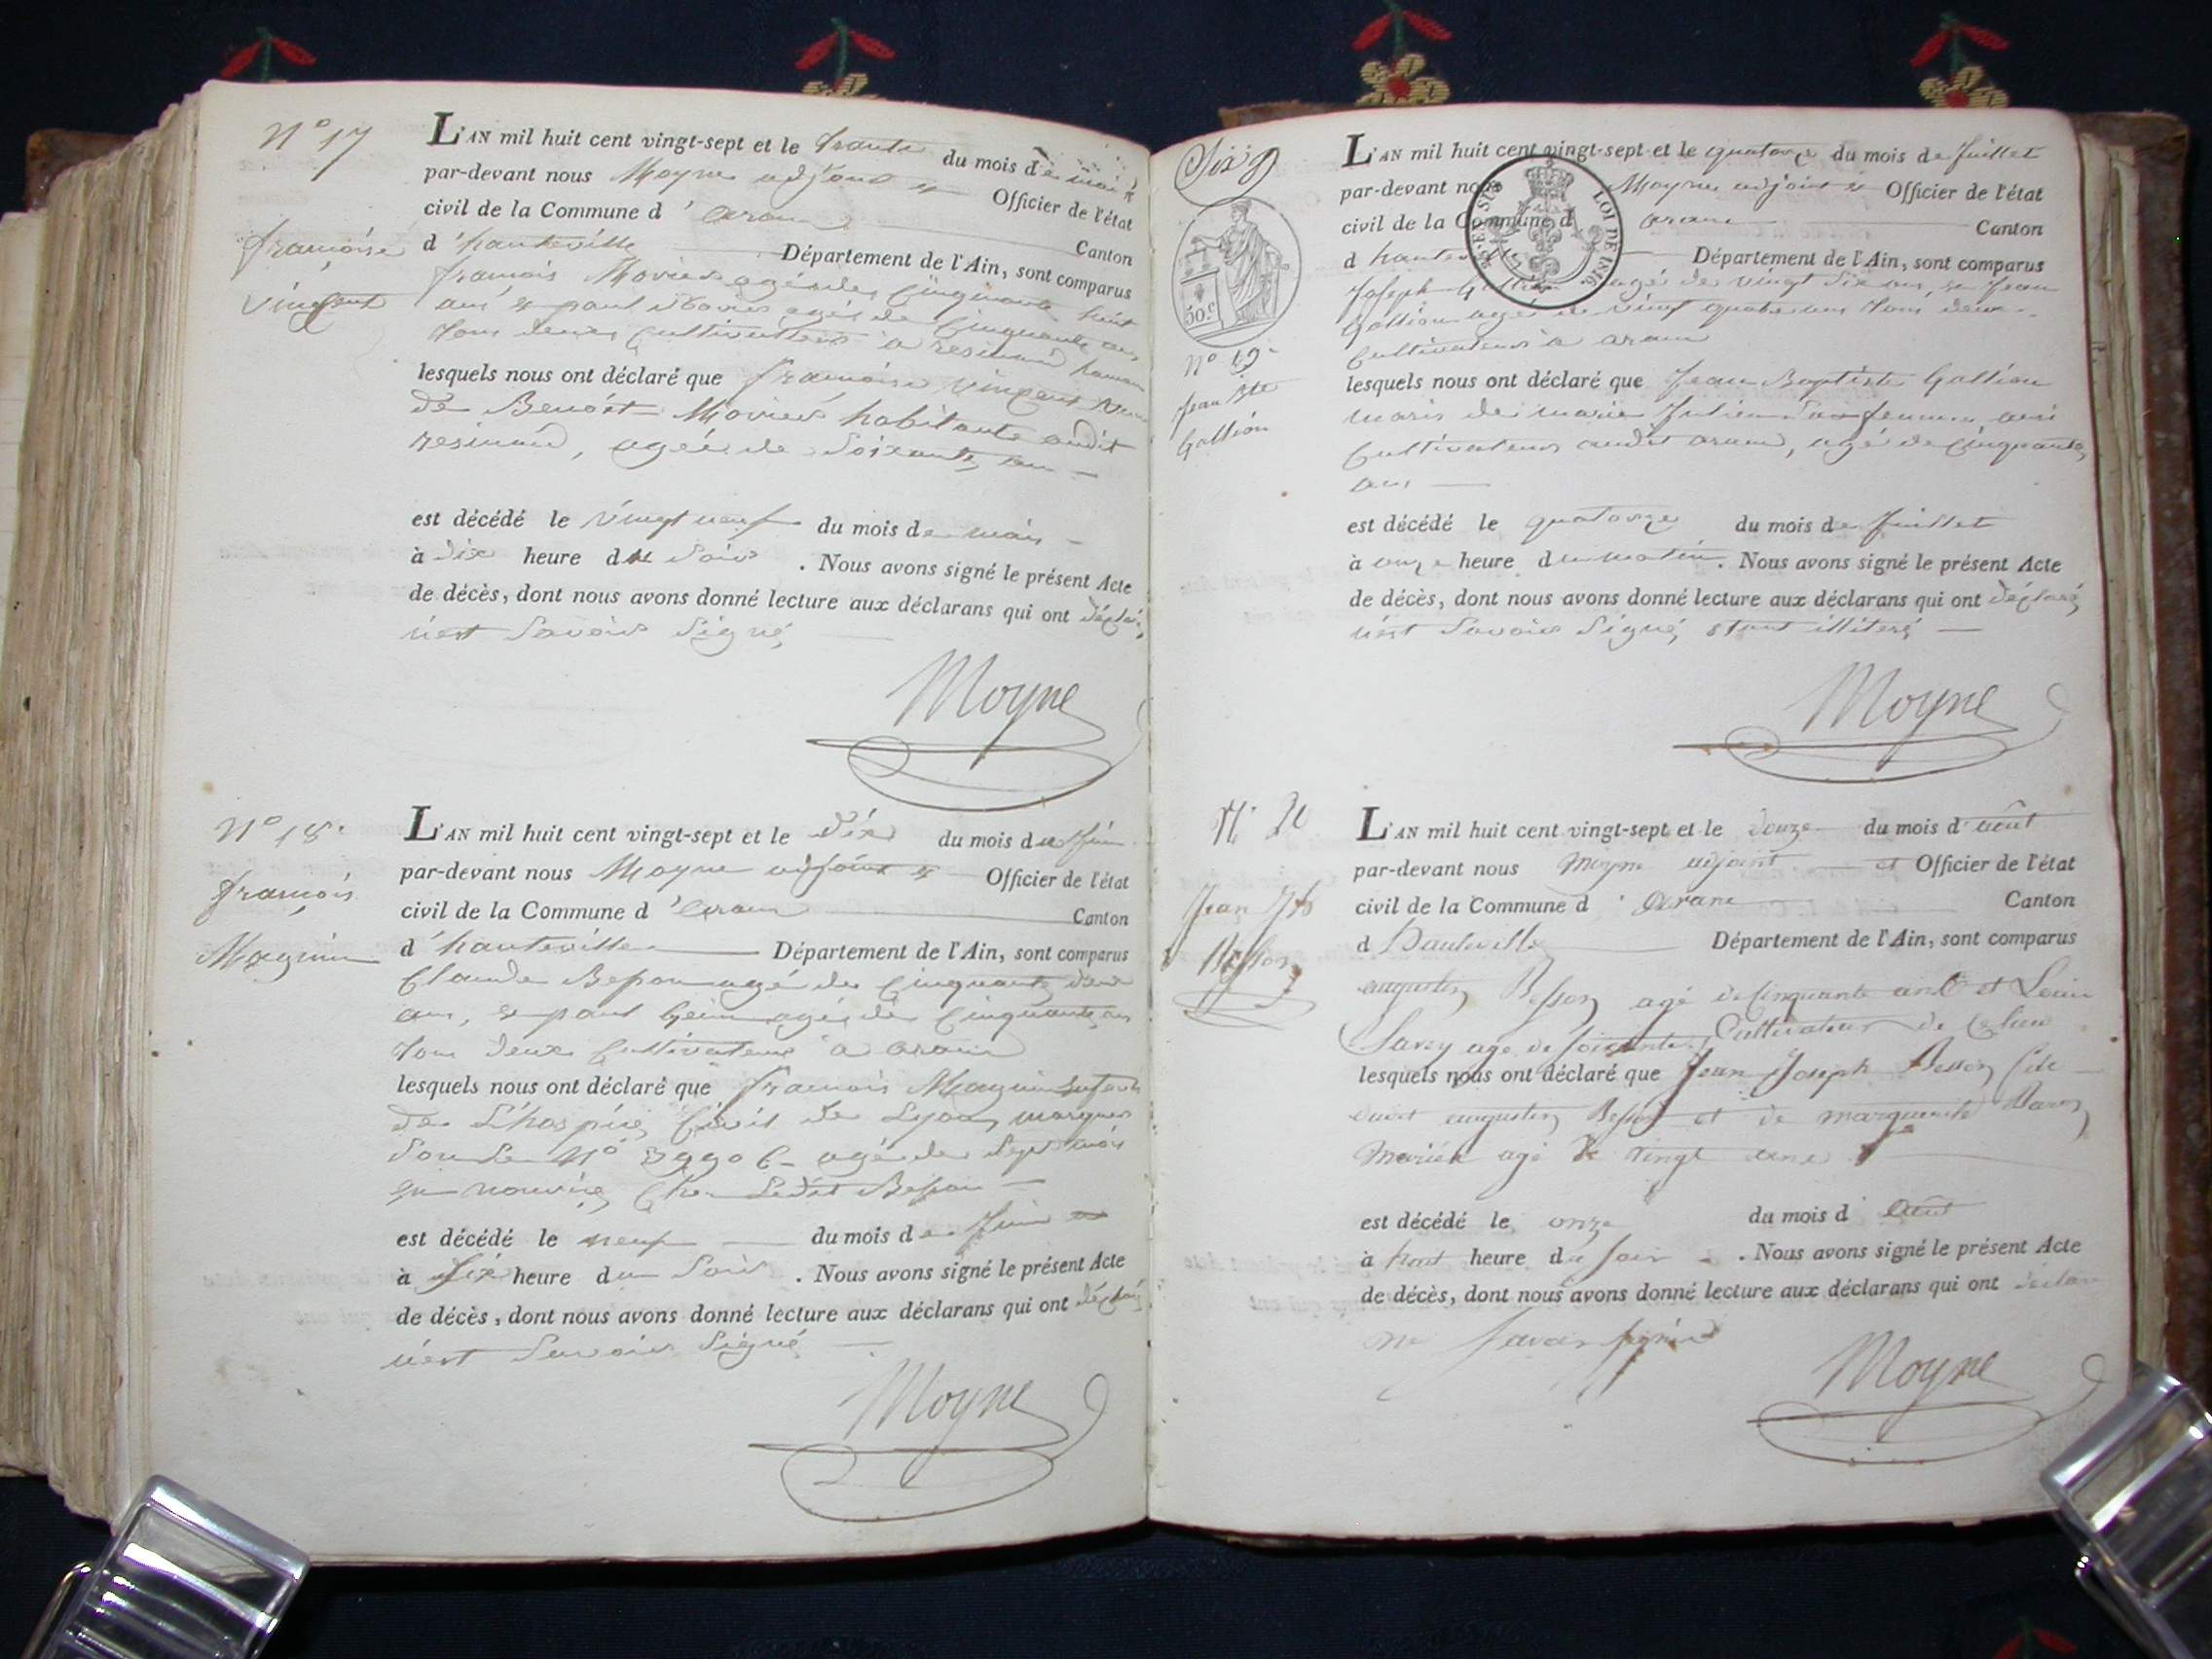 N° 17
françoise
vincent
L'AN mil huit cent vingt-sept et le trante du mois de mai
par-devant nous Moyne adjoint et Officier de l'état
civil de la Commune d'aranc Canton
d'hauteville Département de l'Ain, sont comparus
françois Moviers agés de Cinquante huit
ans et paul Moviers agés de Cinquante ans
tous deux Cultivateurs a resinand hameau
lesquels nous ont déclaré que françoise vincent veuve
de Benoit Moviers habitante audit
resinand, agée de Soixante ans
est décédé le vingt neuf du mois de mai
à dix heure du Soir . Nous avons signé le présent Acte
de décès, dont nous avons donné lecture aux déclarans qui ont déclaré
n'est Savoir Signé
Moyne
N° 18
françois
Magnin
L'AN mil huit cent vingt-sept et le dix du mois de Juin
par-devant nous Moyne adjoint et Officier de l'état
civil de la Commune d'aranc Canton
d'hauteville Département de l'Ain, sont comparus
Claude Besson agé de Cinquante deux
ans, et paul agé de Cinquante ans
tous deux Cultivateurs a aranc
lesquels nous ont déclaré que françois Magnin enfant
de L'hospice Civil de Lyon, marquer
Sous Le N° 39906 agé de Sept mois
en nourice Chez Ledit Besson
est décédé le neuf du mois de Juin
à Six heure du Soir . Nous avons signé le présent Acte
de décès, dont nous avons donné lecture aux déclarans qui ont déclaré
n'est Savoir Signé
Moyne
Six
50.c
N° 19
Jean Bte
Gallion
LOI DE 1816
L'AN mil huit cent vingt-sept et le quatorze du mois de Juillet
par-devant nous Moyne adjoint et Officier de l'état
civil de la Commune d aranc Canton
d hauteville Département de l'Ain, sont comparus
Joseph Gallion agé de vingt Six ans, et Jean
Gallion agé de vingt quatre ans tous deux
Cultivateurs a aranc
lesquels nous ont déclaré que Jean Baptiste Gallion
maris de marie Julien Sa femme,
Cultivateur audit aranc, agé de Cinquante
ans
est décédé le quatorze du mois de Juillet
à onze heure du matin . Nous avons signé le présent Acte
de décès, dont nous avons donné lecture aux déclarans qui ont déclaré
n'est Savoir Signé, étant illiteré
Moyne
N° 20
Jean Jph
Besson
L'AN mil huit cent vingt-sept et le douze du mois d'août
par-devant nous Moyne adjoint et Officier de l'état
civil de la Commune d'Arane Canton
d Hauteville Département de l'Ain, sont comparus
augustin Besson agé de cinquante ans et Louis
Savey age de soixante, Cultivateur de ce lieu
lesquels nous ont déclaré que Jean Joseph Besson fils
audit augustin Besson et de marguerite
Mariée agé de vingt ans
est décédé le onze du mois d'août
à huit heure du soir . Nous avons signé le présent Acte
de décès, dont nous avons donné lecture aux déclarans qui ont déclaré
ne savoir signer
Moyne